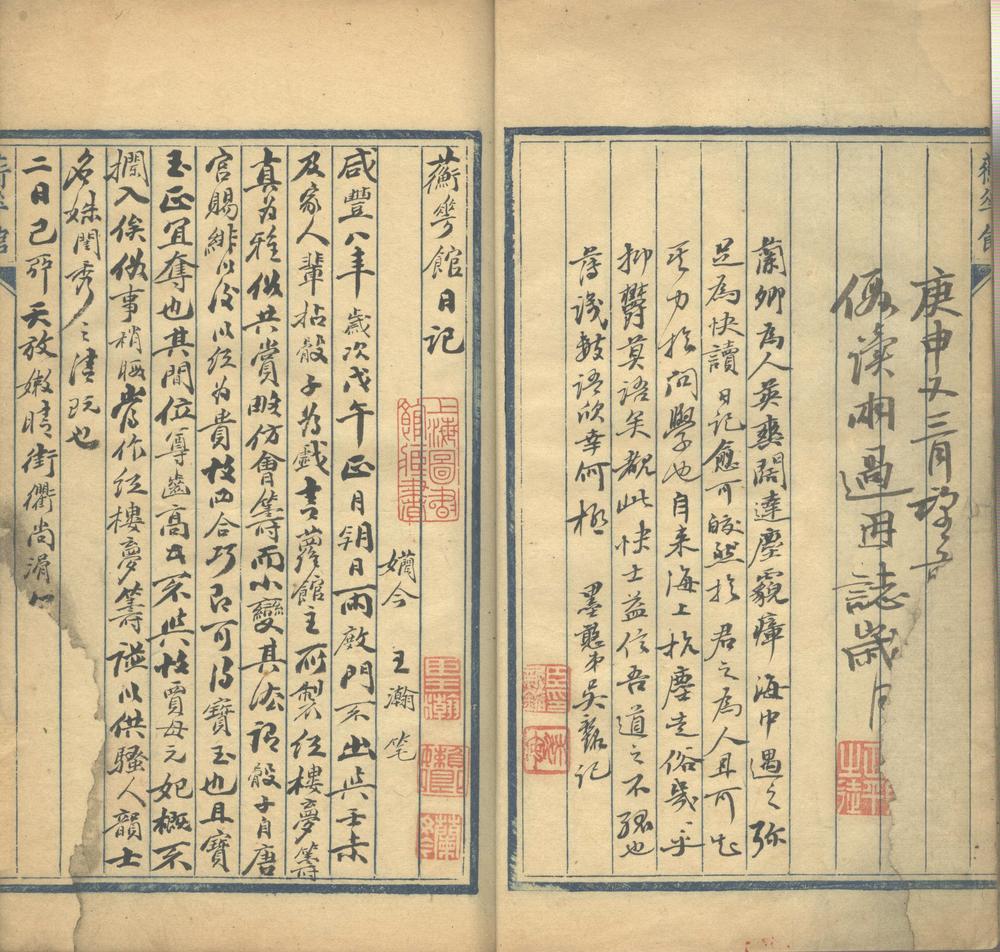 庚申又三月
假讀兩過 因誌歲月
蘭卿為人英爽闊達塵竅瘴海中遇之弥
足為快讀日記愈可皎然於君之為人且可
力於問學也自来海上抗塵走俗
抑鬱莫語矣覩此快士益信吾道之不孤也
薄識數語欣幸何極 墨憨弟吳記
蘅華館日記
嬾今 王瀚 笔
上海圖書館藏書
王瀚
咸豐八年歲次戊午正月朔日雨殿門不出與壬未
及家人輩拈骰子為戲古蘿館主所製紅樓夢籌
真为雅俗共賞略仿會籌而小變其法謂骰子自唐
宫賜緋以後以红为貴枝四合巧乃可得寶玉也且寶
玉正宜奪也其間位尊齒高者不與故賈母元妃概不
攔入俟俗事稍暇當作红樓夢籌谜以供騷人韻士
名姝閨秀之清玩也
二日己卯天放嫩晴街衢尚滑